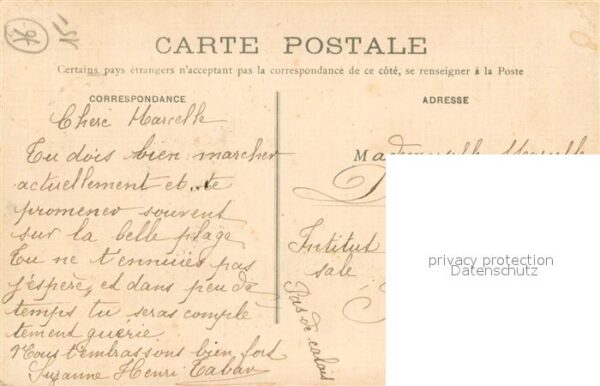 CARTE POSTALE
Certains pays étrangers n'acceptant pas la correspondance de ce côté, se renseigner à la Poste
CORRESPONDANCE
Chère Marcelle
Tu dois bien marcher
actuellement et te
promener souvent
sur la belle plage
Tu ne t'ennuiés pas
j'espère, et dans peu de
temps tu seras comple
tement guérie
Nous t'embrassons bien fort
Suzanne Henri
ADRESSE
Mademoiselle Marcelle
Institut
sale
Pas de calais
privacy protection
Datenschutz